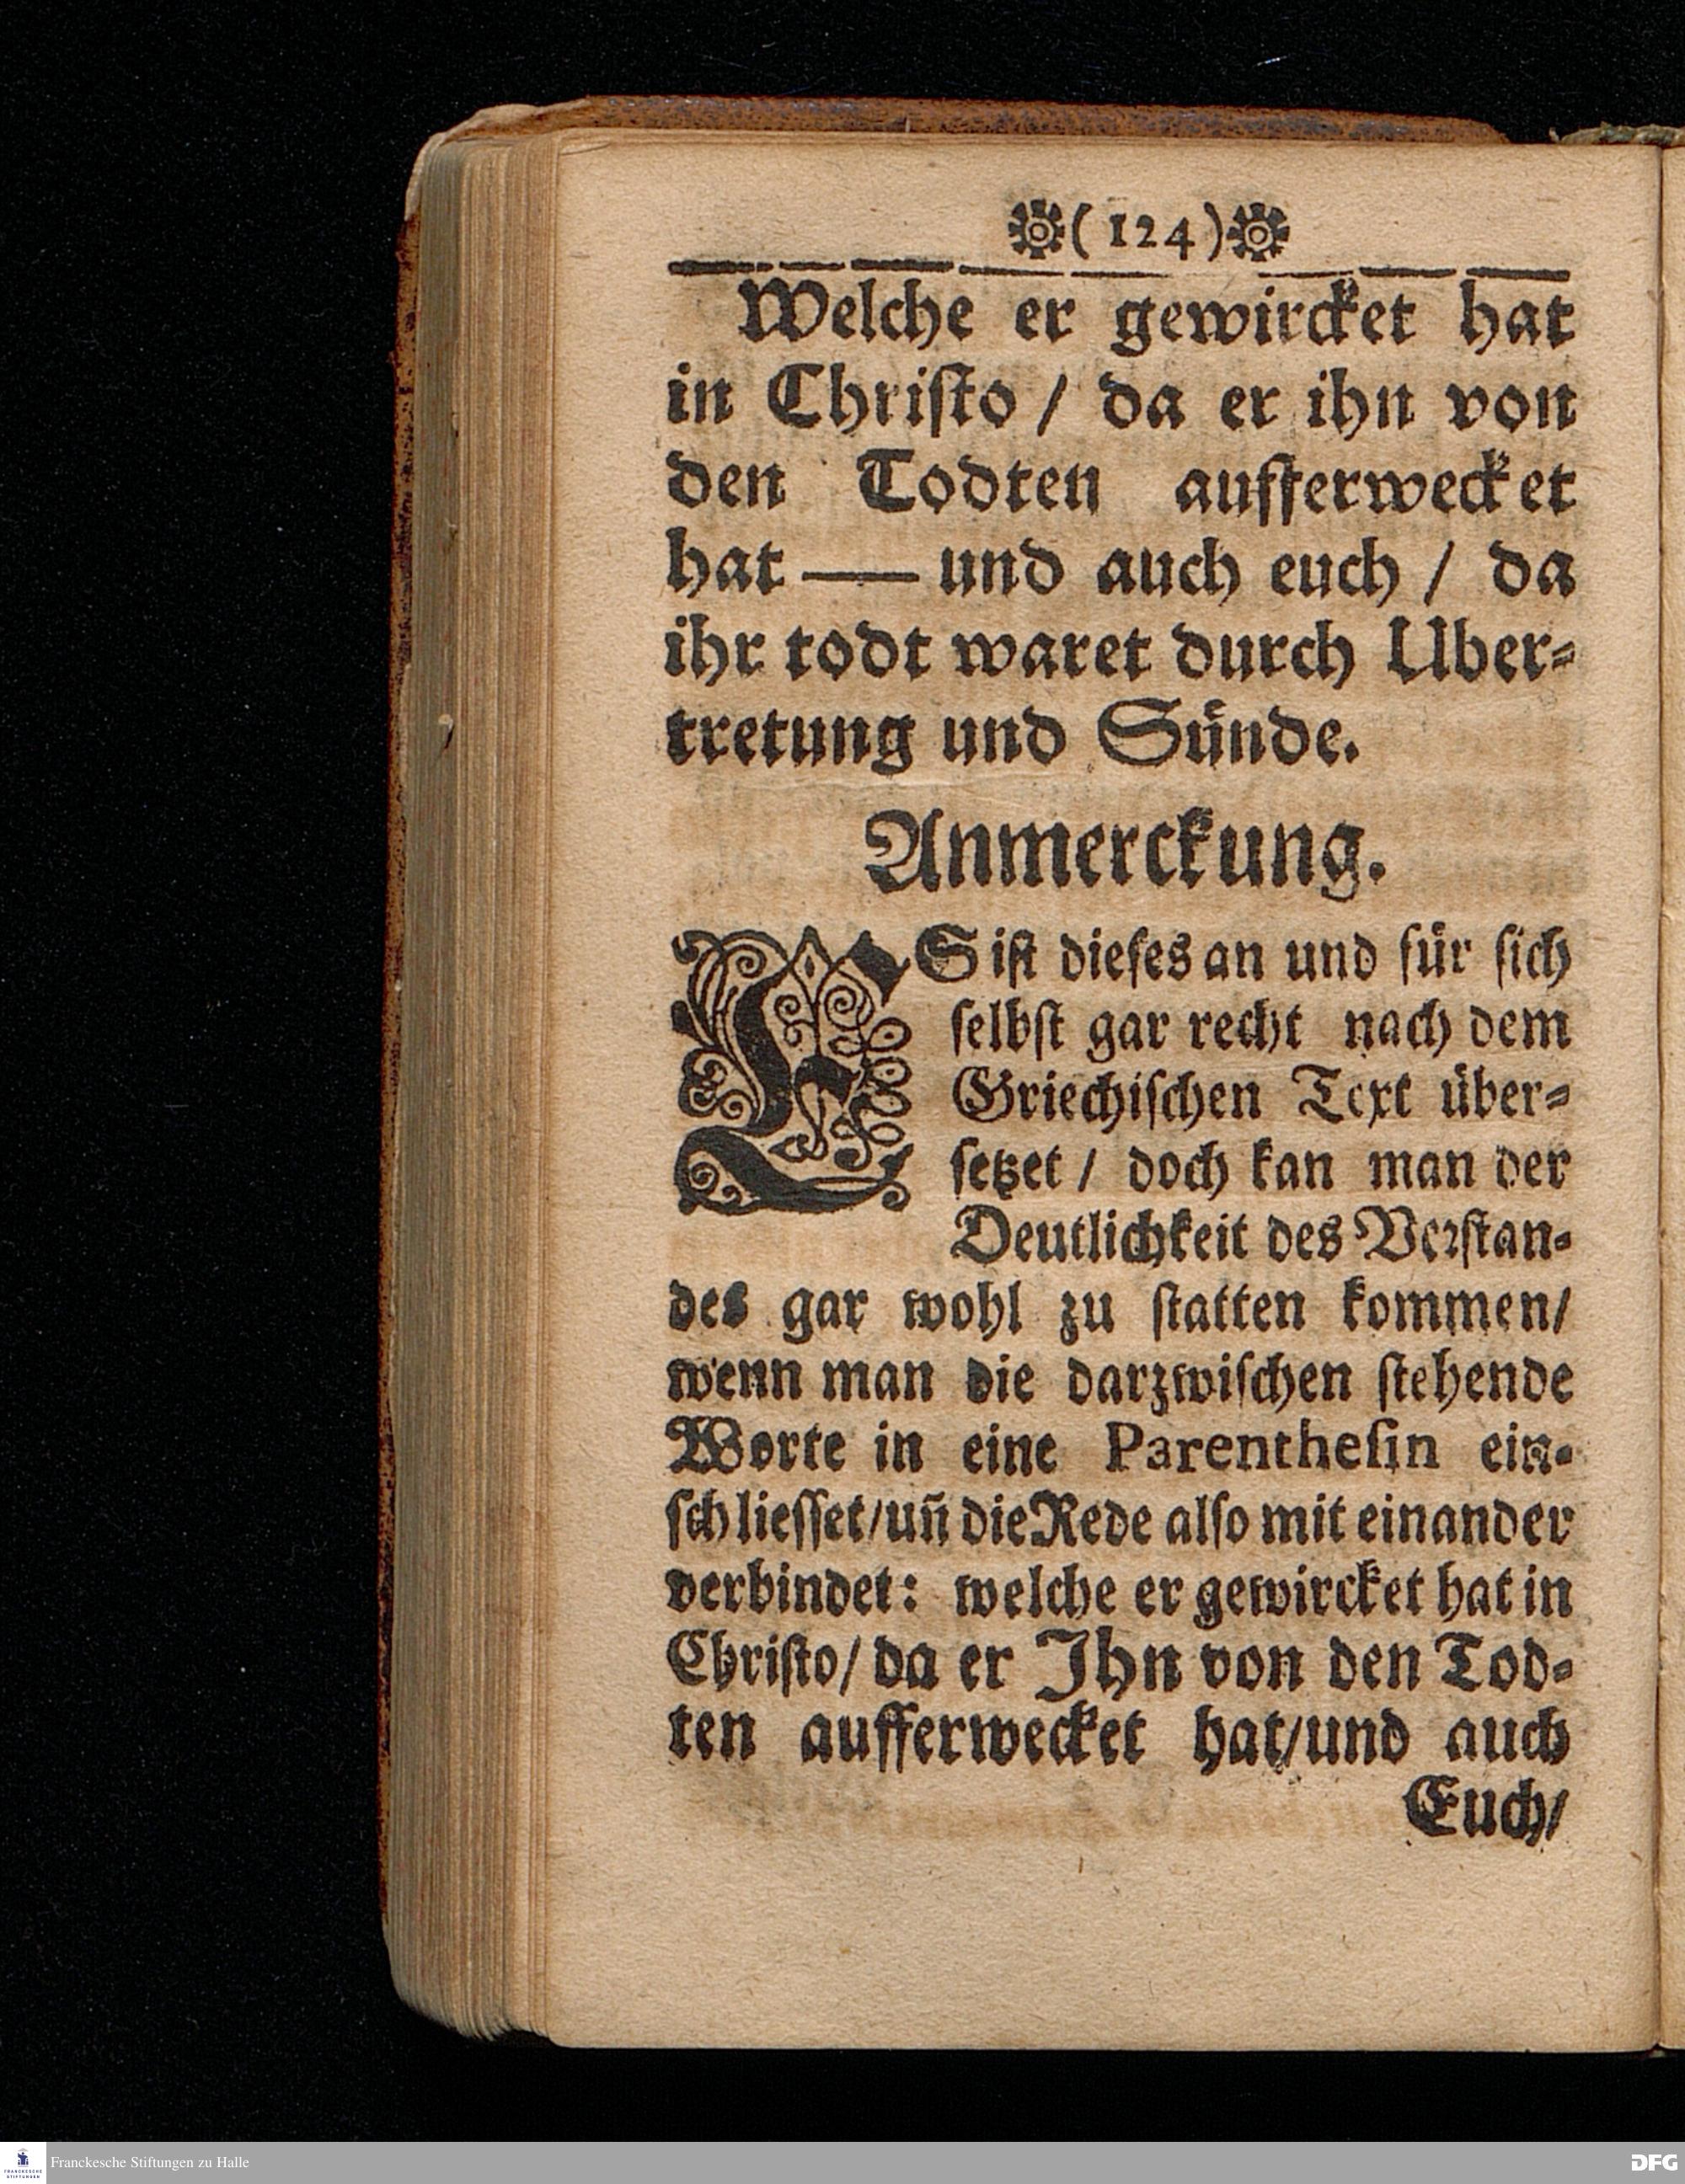 ( 124 )
Welche er gewircket hat
in Chriſto / da er ihn von
den Todten aufferwecket
hat — und auch euch / da
ihr todt waret durch Uber⸗
tretung und Sünde.
Anmerckung.
ES iſt dieſes an und für ſich
ſelbſt gar recht nach dem
Griechiſchen Text über⸗
ſetzet / doch kan man der
Deutlichkeit des Verſtan⸗
des gar wohl zu ſtatten kommen/
wenn man die darzwiſchen ſtehende
Worte in eine Parentheſin ein⸗
ſchlieſſet/uñ die Rede alſo mit einander
verbindet: welche er gewircket hat in
Chriſto/ da er Ihn von den Tod⸗
ten aufferwecket hat/und auch
Euch/
Franckesche Stiftungen zu Halle
FRANCKESCHE
STIFTUNGEN
DFG